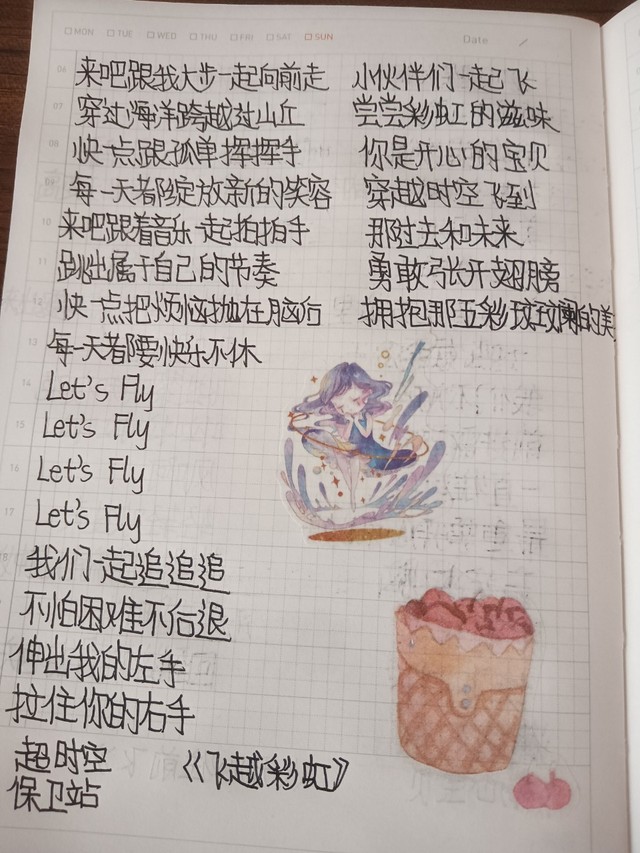 MON TUE WED THU FRI SAT SUN
Date /
06
07
08
09
10
11
12
13
14
15
16
17
18
来吧跟我大步一起向前走
穿过海洋跨越过山丘
快一点跟孤单挥挥手
每一天都绽放新的笑容
来吧跟着音乐一起拍拍手
跳出属于自己的节奏
快一点把烦恼抛在脑后
每一天都要快乐不休
Let's Fly
Let's Fly
Let's Fly
Let's Fly
我们一起追追追
不怕困难不后退
伸出我的左手
拉住你的右手
超时空
保卫站
《飞越彩虹》
小伙伴们一起飞
尝尝彩虹的滋味
你是开心的宝贝
穿越时空飞到
那过去和未来
勇敢张开翅膀
拥抱那五彩玟玟斓的美